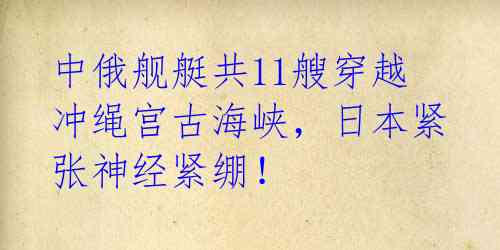 中俄舰艇共11艘穿越
冲绳宫古海峡，日本紧
张神经紧绷！